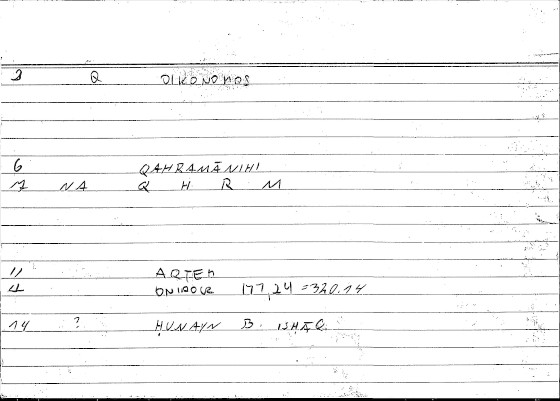 3 Q OIKONOMOS
6 QAHRAMĀNIHI
7 NA Q H R M
11 ARTEM
4 ONIROCR 177,24 = 320.14
14 ? ḤUNAYN B. ISḤĀQ